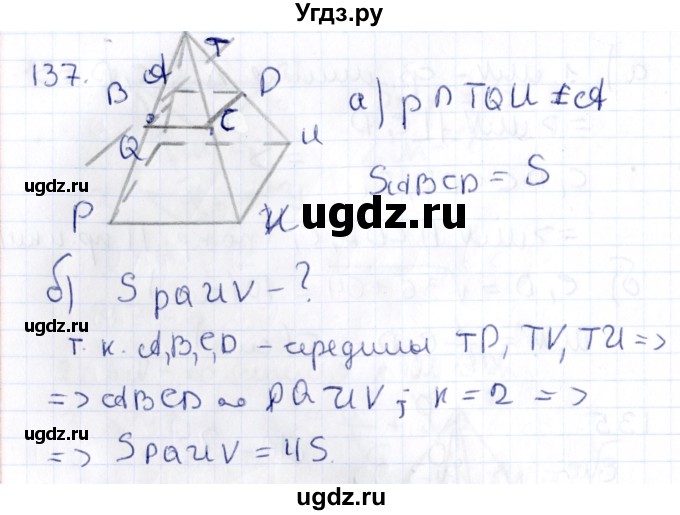 Угдз.ру
137.
T
A
B
D
C
Q
U
P
а) p ∩ TQU
S ABCD = S
б) S PQUV - ?
т. к. A, B, C, D - середины TP, TV, TU =>
=> ABCD ∾ PQUV; k = 2 =>
=> S PQUV = 4S.
ugdz.ru
ugdz.ru
ugdz.ru
ugdz.ru
ugdz.ru
ugdz.ru
ugdz.ru
ugdz.ru